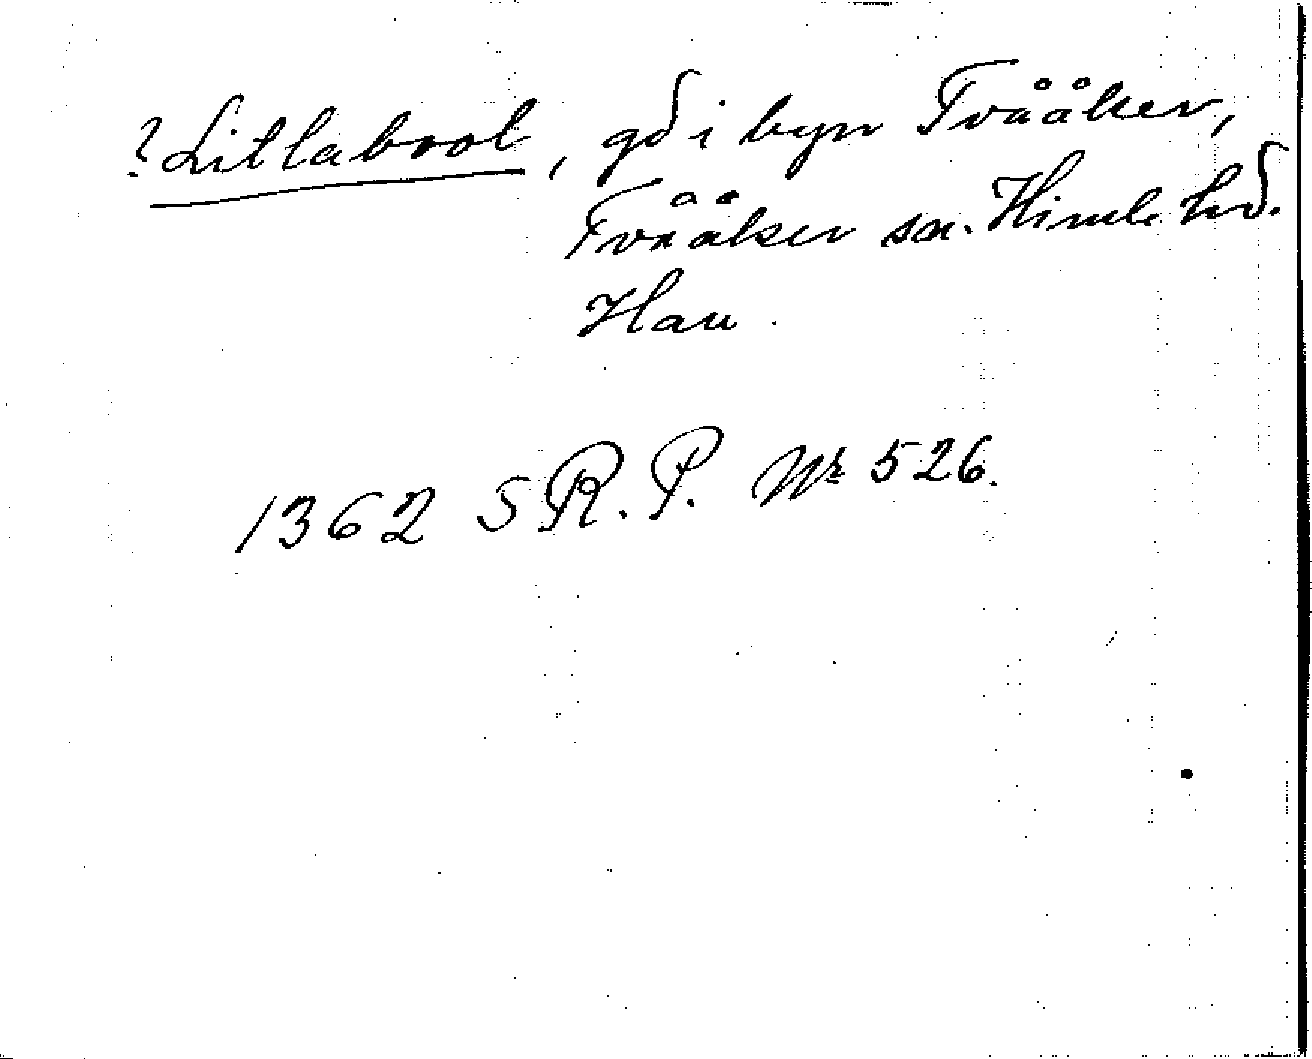 ? Litlabool, gd i byn Tvååker,
Tvååker sn. Himle hd.
Han.
1362 SR.P. Nr 526.